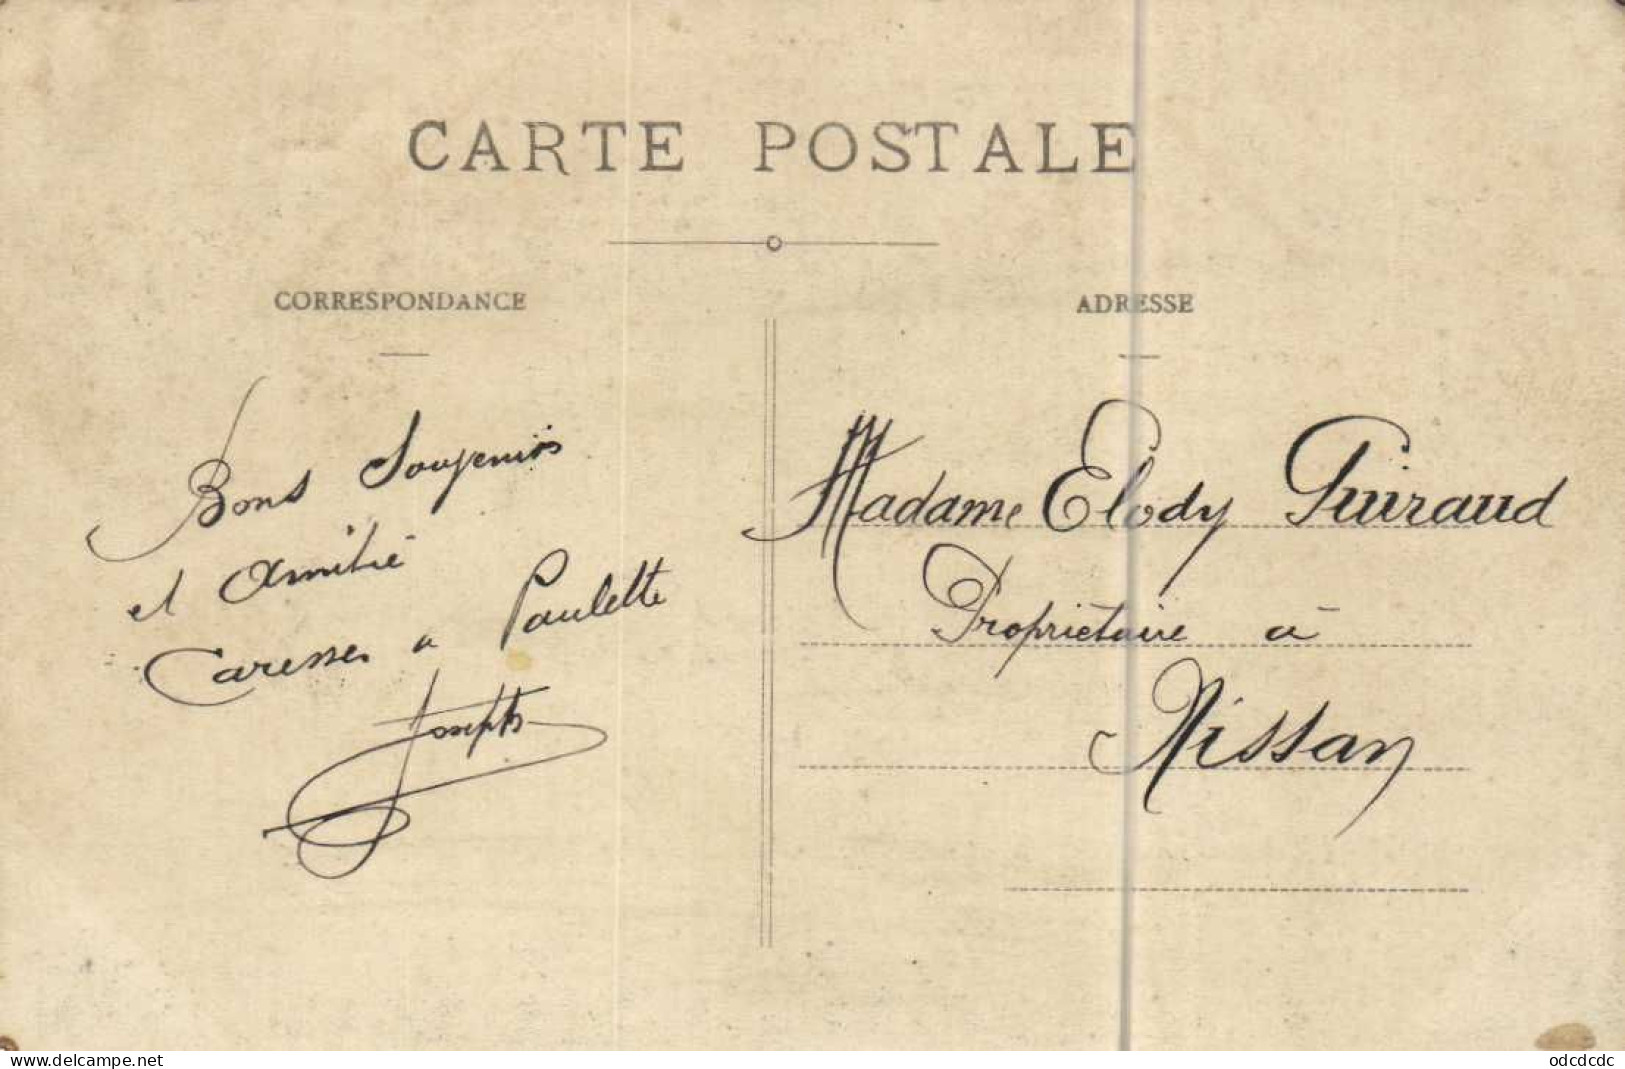 CARTE POSTALE
CORRESPONDANCE
ADRESSE
Bons Souvenirs
et Amitié
Caresses a Paulette
Joseph
Madame Elody Guiraud
Propriétaire à
Nissan
www.delcampe.net
odcdcdc